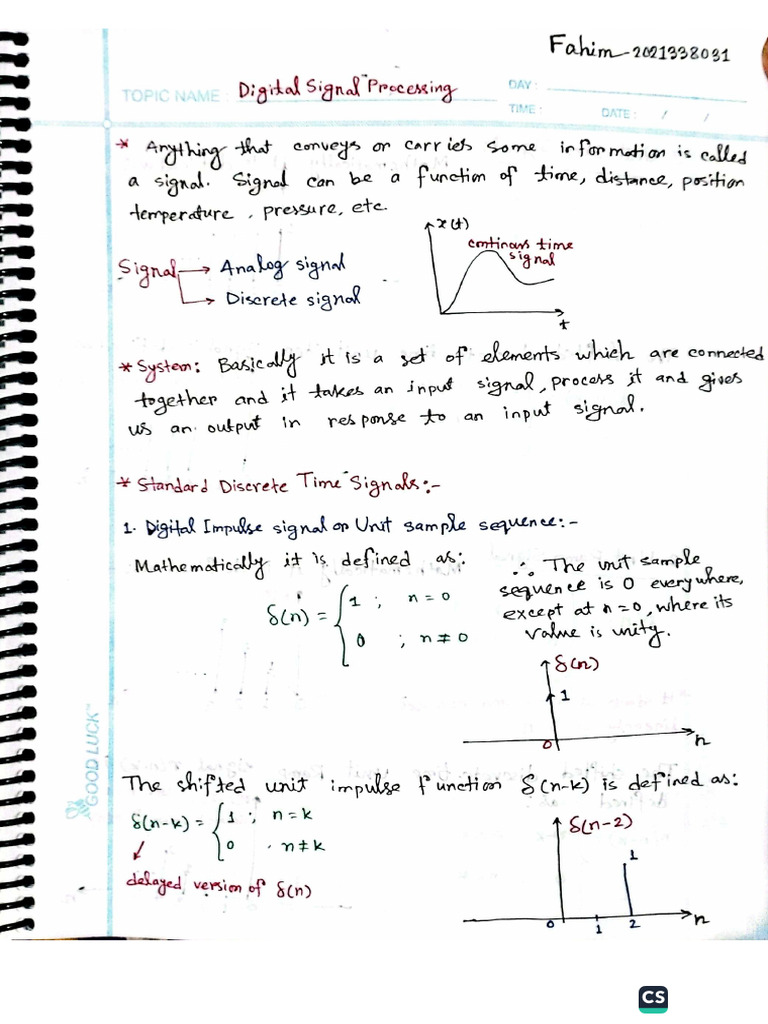 Fahim-2021338031
TOPIC NAME: Digital Signal Processing
DAY:
TIME: DATE: / /
* Anything that conveys or carries some information is called
a signal. Signal can be a function of time, distance, position
temperature, pressure, etc.
x(t)
continous time
signal
t
Signal → Analog signal
→ Discrete signal
* System: Basically it is a set of elements which are connected
together and it takes an input signal, process it and gives
us an output in response to an input signal.
* Standard Discrete Time Signals:-
1. Digital Impulse signal or Unit sample sequence:-
Mathematically it is defined as:
δ(n) = { 1 ; n = 0
0 ; n ≠ 0
∴ The unit sample
sequence is 0 everywhere,
except at n=0, where its
value is unity.
δ(n)
1
0
n
The shifted unit impulse function δ(n-k) is defined as:
δ(n-k) = { 1 ; n = k
0 . n ≠ k
delayed version of δ(n)
δ(n-2)
1
0 1 2 n
GOOD LUCK™
CS